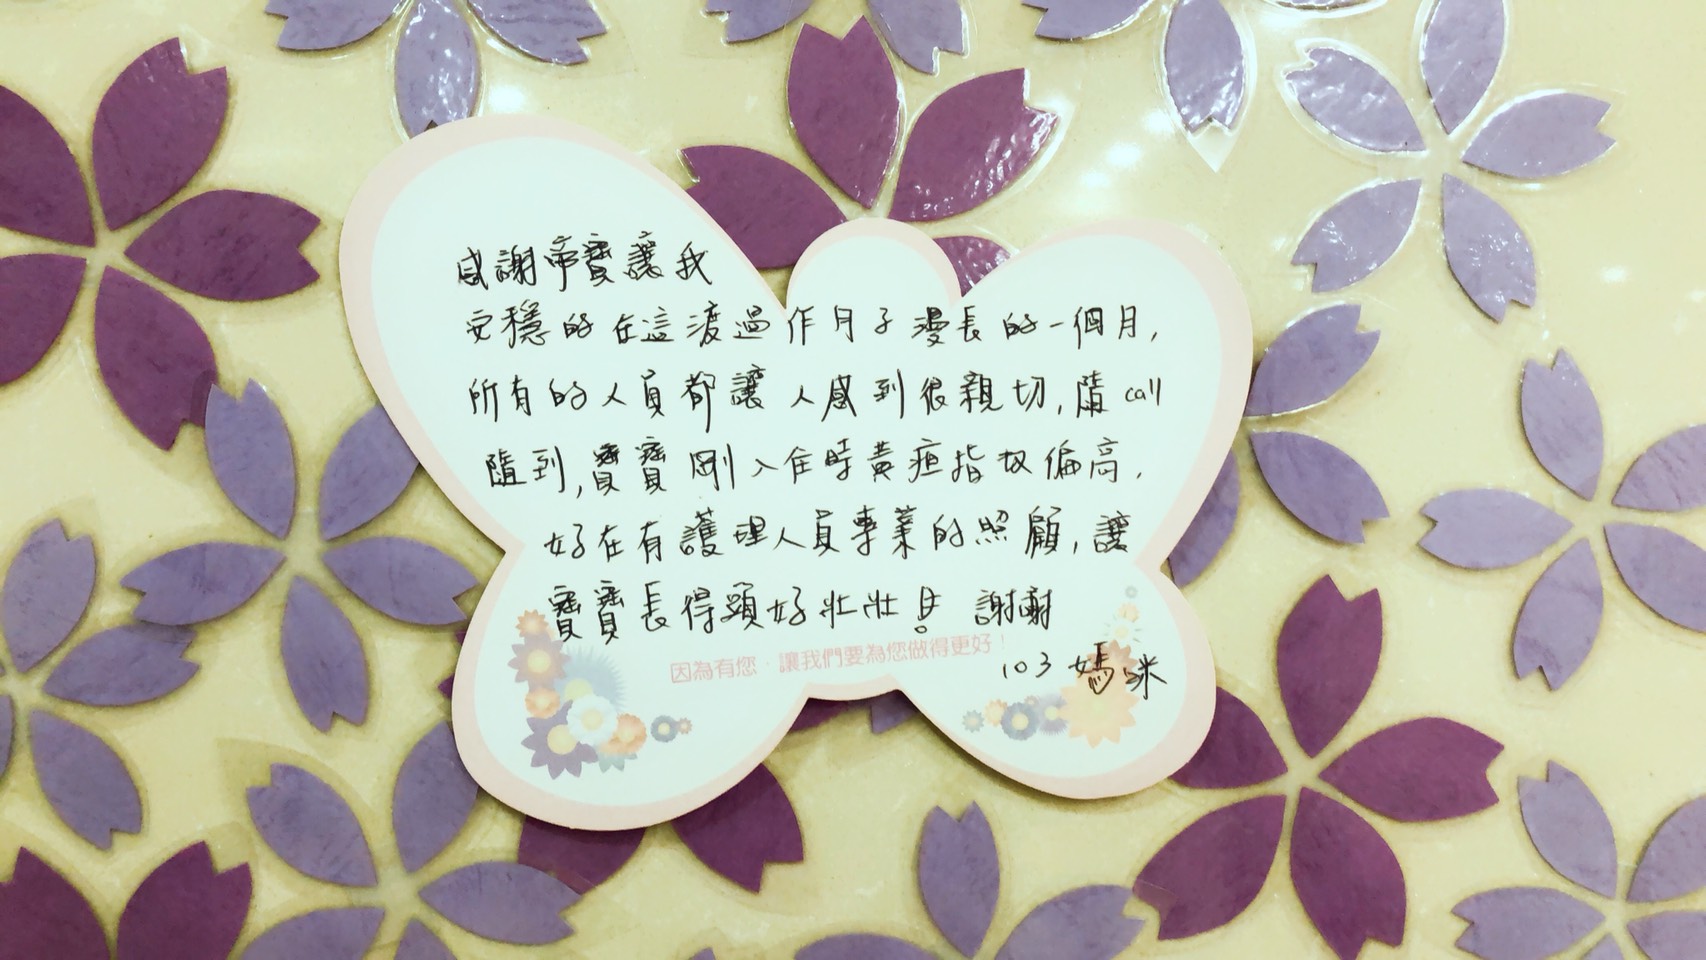 感謝帝寶讓我
安穩的在這渡過作月子漫長的一個月,
所有的人員都讓人感到很親切,隨call
隨到,寶寶剛入住時黃疸指數偏高,
好在有護理人員專業的照顧,讓
寶寶長得頭好壯壯! 謝謝
103媽咪
因為有您,讓我們要為您做得更好!